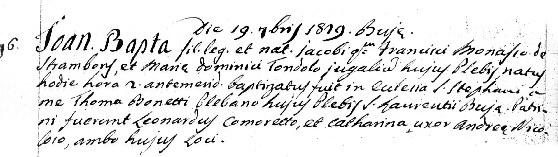 Die 19. 7bris 1819. Buja.
96. Joan. Bapta fil. leg. et nat. Jacobi qm Francisci Monasso de
Strambons, et Maria Dominici Tondolo jugaliu hujus Plebis, natus
hodie hora 2 antemerid. baptizatus fuit in Eclesia S. Stephani a
me Thoma Bonetti Plebano hujus Plebis S. Laurentii Buja. Patri-
ni fuerunt Leonardus Comoretto, et Catharina uxor Andrea Nico-
loso, ambo hujus Loci.